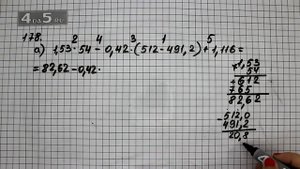 4a5.NET
178.
2 4 3 1 5
а) 1,53·54-0,42·(512-491,2)+1,116=
=82,62-0,42·
×1,53
54
+612
765
82,62
-512,0
491,2
20,8